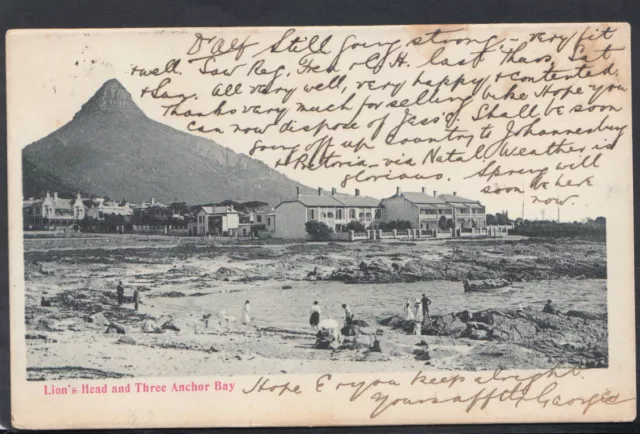 Dr Alf Still going strong - very fit
& well. Saw Reg. Fred & G H. last Thurs, Sat
& Sun. All very well, very happy & contented.
Thanks very much for selling bike Hope you
can now dispose of Jess's. Shall be soon
going off up country to Johannesburg
& Pretoria - via Natal. Weather is
glorious. Spring will
soon be here
now.
Lion's Head and Three Anchor Bay
Hope E & you keep alright.
Yours aff tly Georgie